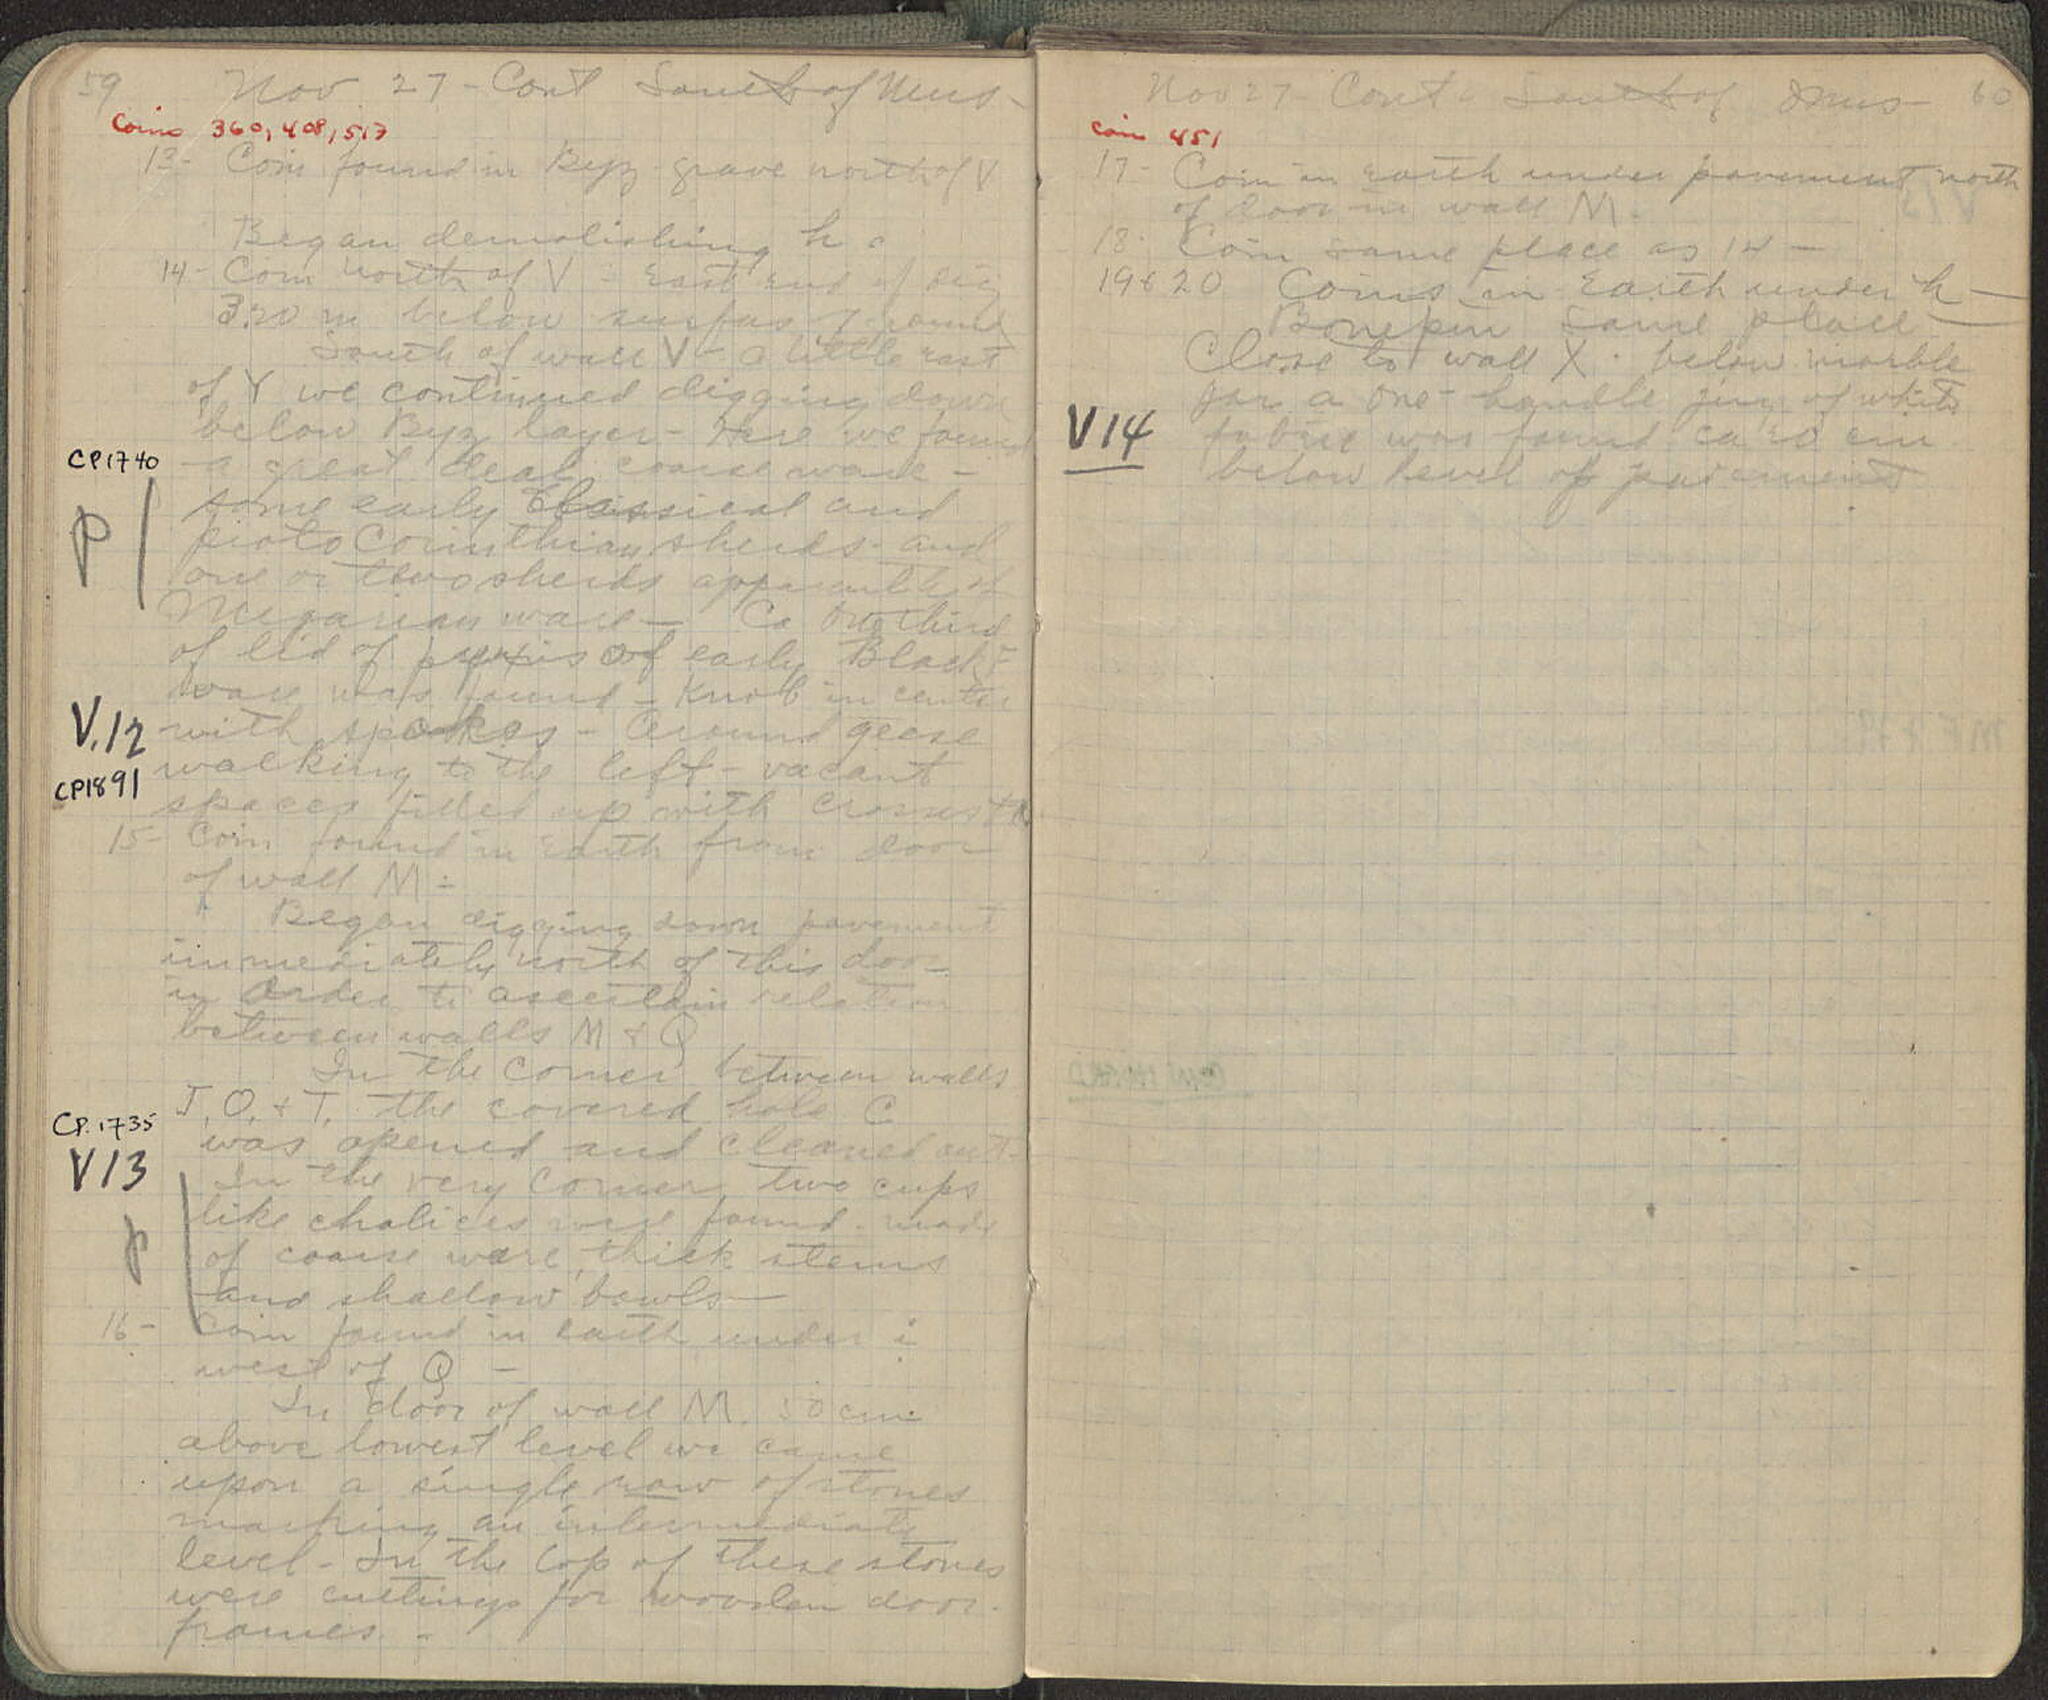 59 Nov 27 - Cont South of Mus -
Coins 360, 408, 517
13- Coin found in Byz grave north of V
Began demolishing h
14- Coin north of V - East end of dig
3.20 m below surface ground
South of wall V - a little east
of Y we continued digging down
below Byz layer - Here we found
CP1740
a great deal coarse ware -
P
some early Classical and
proto Corinthian sherds - and
one or two sherds apparently of
Megarian ware - Ca one third
of lid of pyxis of early Black F
ware was found - Knob in center
V.12
with spokes - Around geese
walking to the left - vacant
CP1891
spaces filled up with crosses
15- Coin found in earth from door
of wall M -
Began digging down pavement
immediately north of this door
in order to ascertain relation
between walls M & Q
In the corner between walls
J, O, & T, the covered hole C
CP.1735
was opened and cleaned out -
V13
In the very corner two cups
like chalices were found - made
P
of coarse ware, thick stems
and shallow bowls -
16- Coin found in earth under i
west of Q -
In door of wall M. 50 cm.
above lowest level we came
upon a single row of stones
marking an intermediate
level - In the top of these stones
were cuttings for wooden door-
frames. -
Nov 27 - Cont - South of Mus - 60
coin 451
17- Coin in earth under pavement north
of door in wall M -
18- Coin same place as 14 -
19 & 20 Coins in Earth under h -
Bonepin same place -
Close to wall X. below marble
jar a one-handle jug of white
V14
fabric was found ca 20 cm
below level of pavement